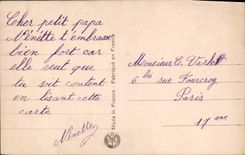 Cher petit papa
Ninette t'embrasse
bien fort car
elle veut que
tu soit content
en lisant cette
carte
Ninette
Made in France - Fabriqué en France
Monsieur C. Varlet
6 bis rue Fourcroy
Paris
17 eme